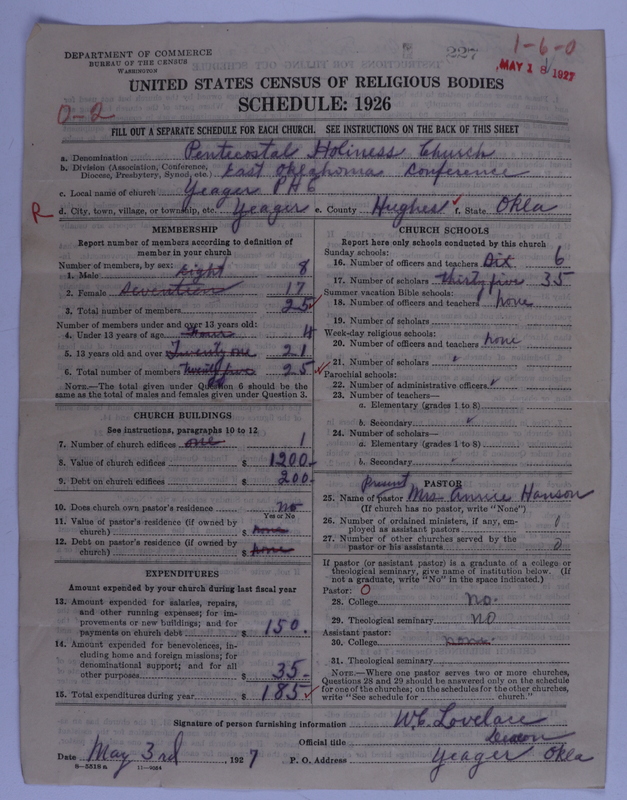 DEPARTMENT OF COMMERCE
BUREAU OF THE CENSUS
WASHINGTON
227
1-6-0
MAY 18 1927
UNITED STATES CENSUS OF RELIGIOUS BODIES
SCHEDULE: 1926
0-2
FILL OUT A SEPARATE SCHEDULE FOR EACH CHURCH. SEE INSTRUCTIONS ON THE BACK OF THIS SHEET
a. Denomination Pentecostal Holiness Church
b. Division (Association, Conference, Diocese, Presbytery, Synod, etc.) East Oklahoma Conference
c. Local name of church Yeager P H C
R d. City, town, village, or township, etc. Yeager e. County Hughes f. State Okla
MEMBERSHIP
Report number of members according to definition of
member in your church
Number of members, by sex:
1. Male eight 8
2. Female Seventeen 17
3. Total number of members 25
Number of members under and over 13 years old:
4. Under 13 years of age four 4
5. 13 years old and over Twenty one 21
6. Total number of members twenty five 25
NOTE.—The total given under Question 6 should be the
same as the total of males and females given under Question 3.
CHURCH BUILDINGS
See instructions, paragraphs 10 to 12
7. Number of church edifices one 1
8. Value of church edifices $ 1200-
9. Debt on church edifices $ 200-
10. Does church own pastor's residence no
Yes or No
11. Value of pastor's residence (if owned by
church) $ none
12. Debt on pastor's residence (if owned by
church) $ none
EXPENDITURES
Amount expended by your church during last fiscal year
13. Amount expended for salaries, repairs,
and other running expenses; for im-
provements or new buildings; and for
payments on church debt $ 150.
14. Amount expended for benevolences, in-
cluding home and foreign missions; for
denominational support; and for all
other purposes $ 35-
15. Total expenditures during year $ 185
CHURCH SCHOOLS
Report here only schools conducted by this church
Sunday schools:
16. Number of officers and teachers Six 6
17. Number of scholars thirty five 35
Summer vacation Bible schools:
18. Number of officers and teachers none
19. Number of scholars
Week-day religious schools:
20. Number of officers and teachers none
21. Number of scholars
Parochial schools:
22. Number of administrative officers
23. Number of teachers—
a. Elementary (grades 1 to 8)
b. Secondary
24. Number of scholars—
a. Elementary (grades 1 to 8)
b. Secondary
present PASTOR
25. Name of pastor Mrs. Annie Hanson
(If church has no pastor, write "None")
26. Number of ordained ministers, if any, em-
ployed as assistant pastors 0
27. Number of other churches served by the
pastor or his assistants 0
If pastor (or assistant pastor) is a graduate of a college or
theological seminary, give name of institution below. (If
not a graduate, write "No" in the space indicated.)
Pastor: 0
28. College no.
29. Theological seminary no
Assistant pastor:
30. College none
31. Theological seminary
NOTE.—Where one pastor serves two or more churches,
Questions 28 and 29 should be answered only on the schedule
for one of the churches; on the schedules for the other churches,
write "See schedule for church."
Signature of person furnishing information W.C. Lovelace
Official title Deacon
Date May 3rd, 1927 P. O. Address Yeager Okla
8-5518a 11-9684